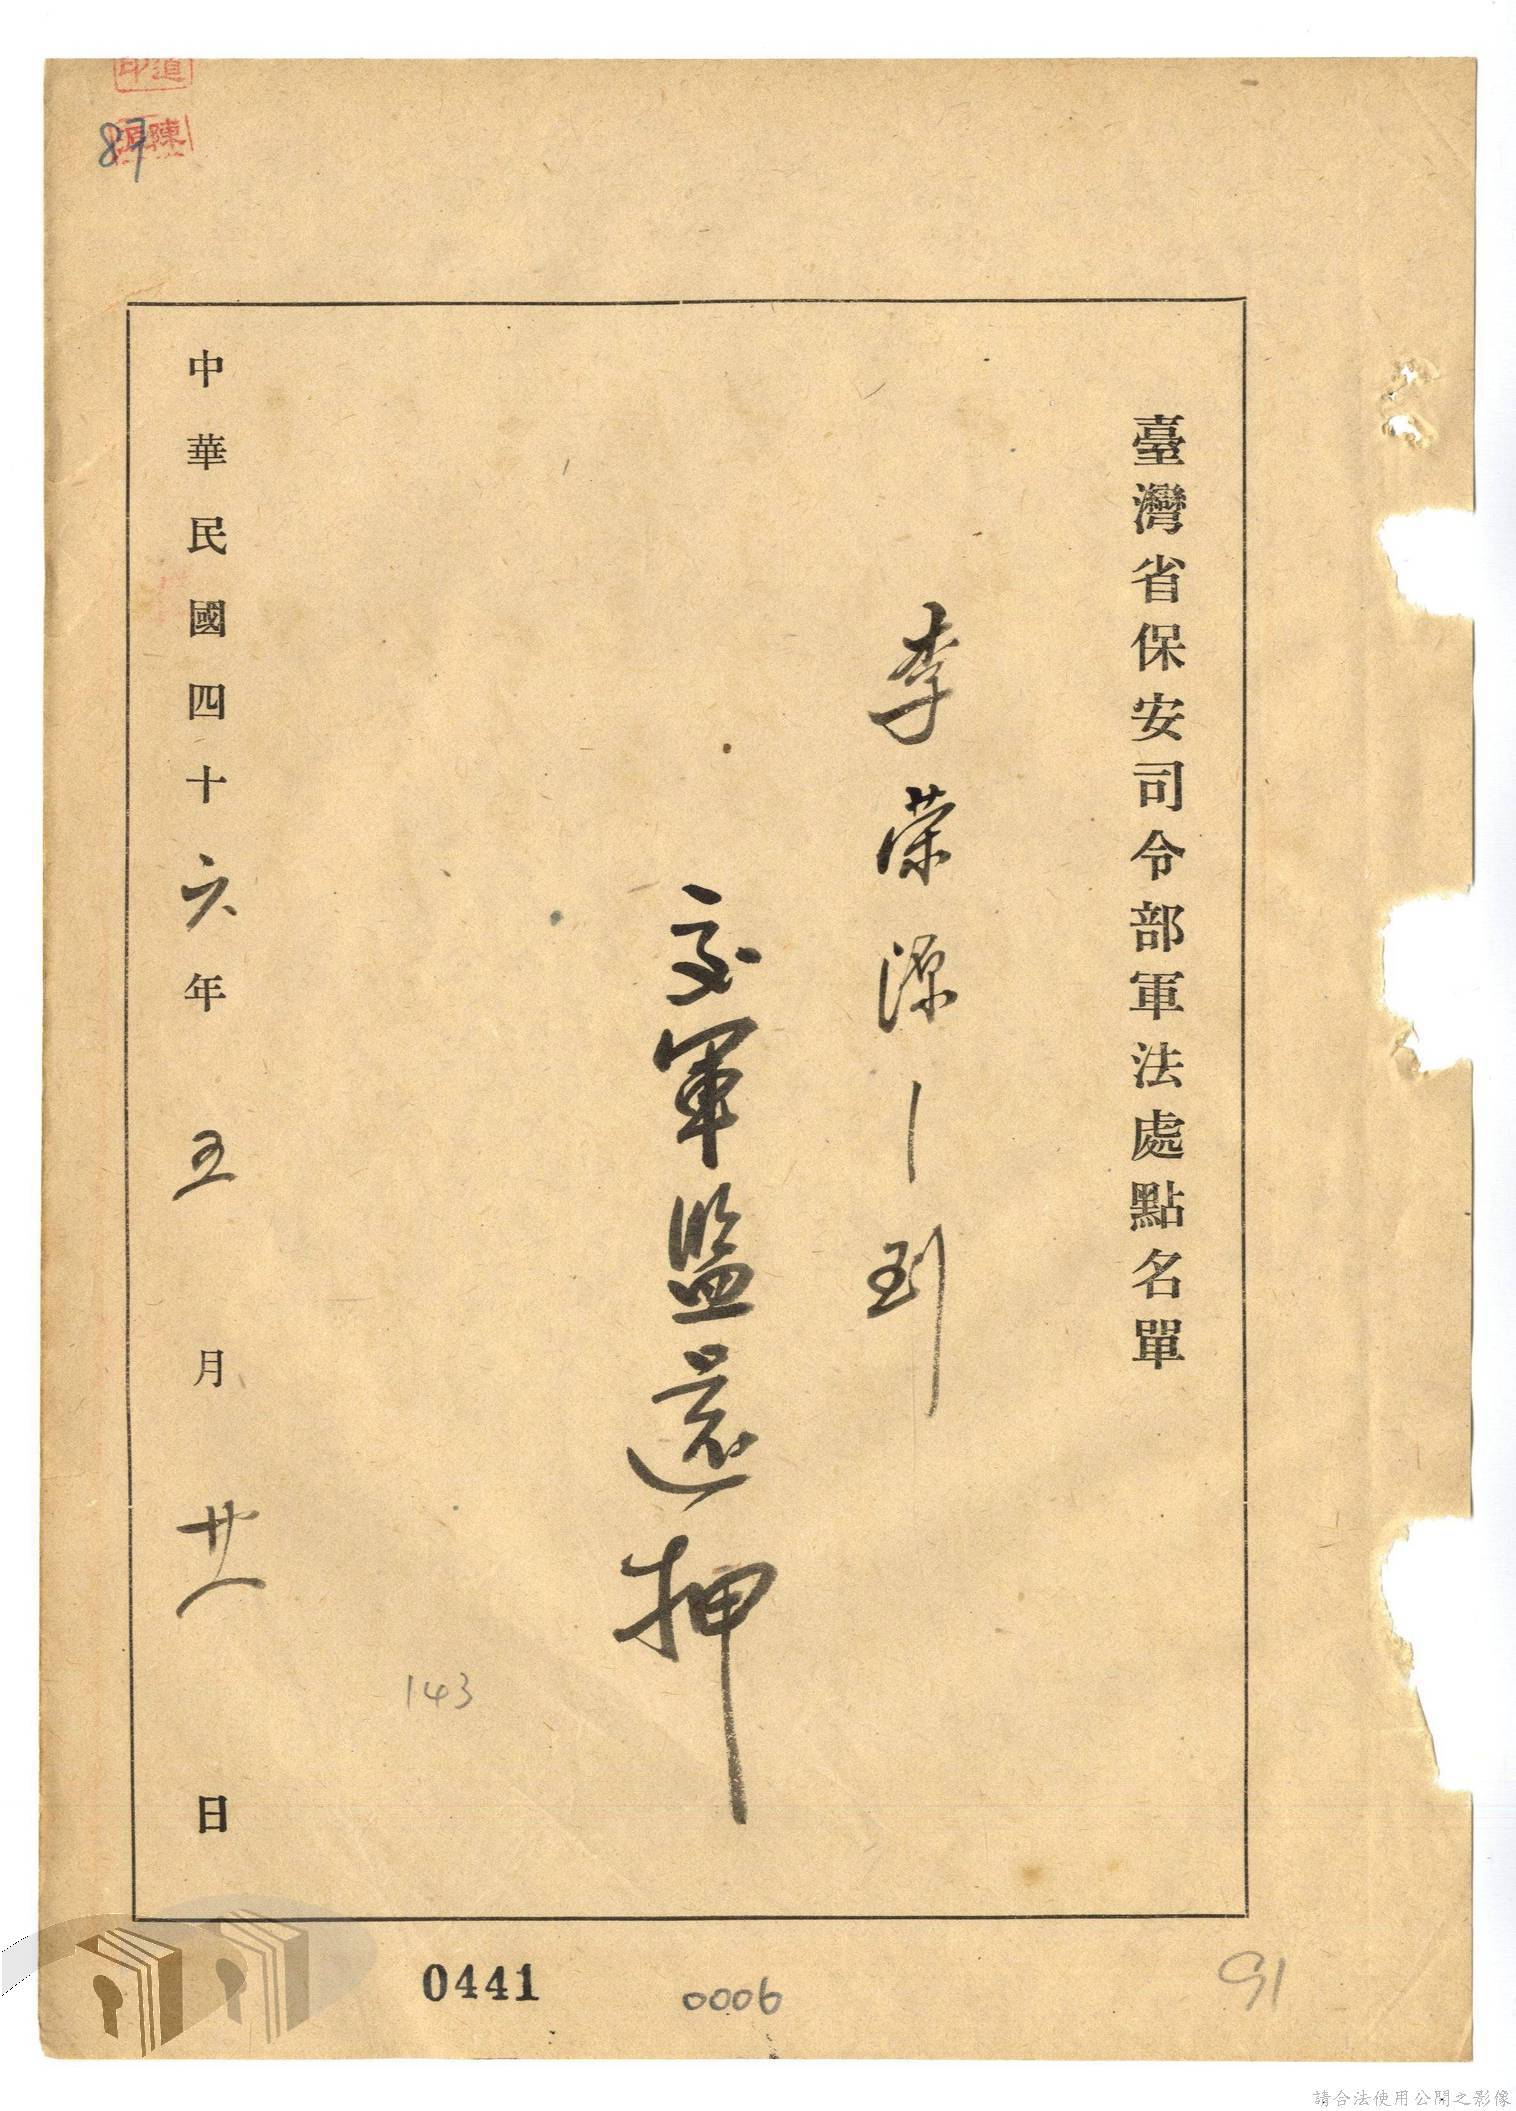 臺灣省保安司令部軍法處點名單
李荣源 到
交軍监還押
中華民國四十六年五月廿一日
87
陳
143
0441
0006
91
請合法使用公開之影像